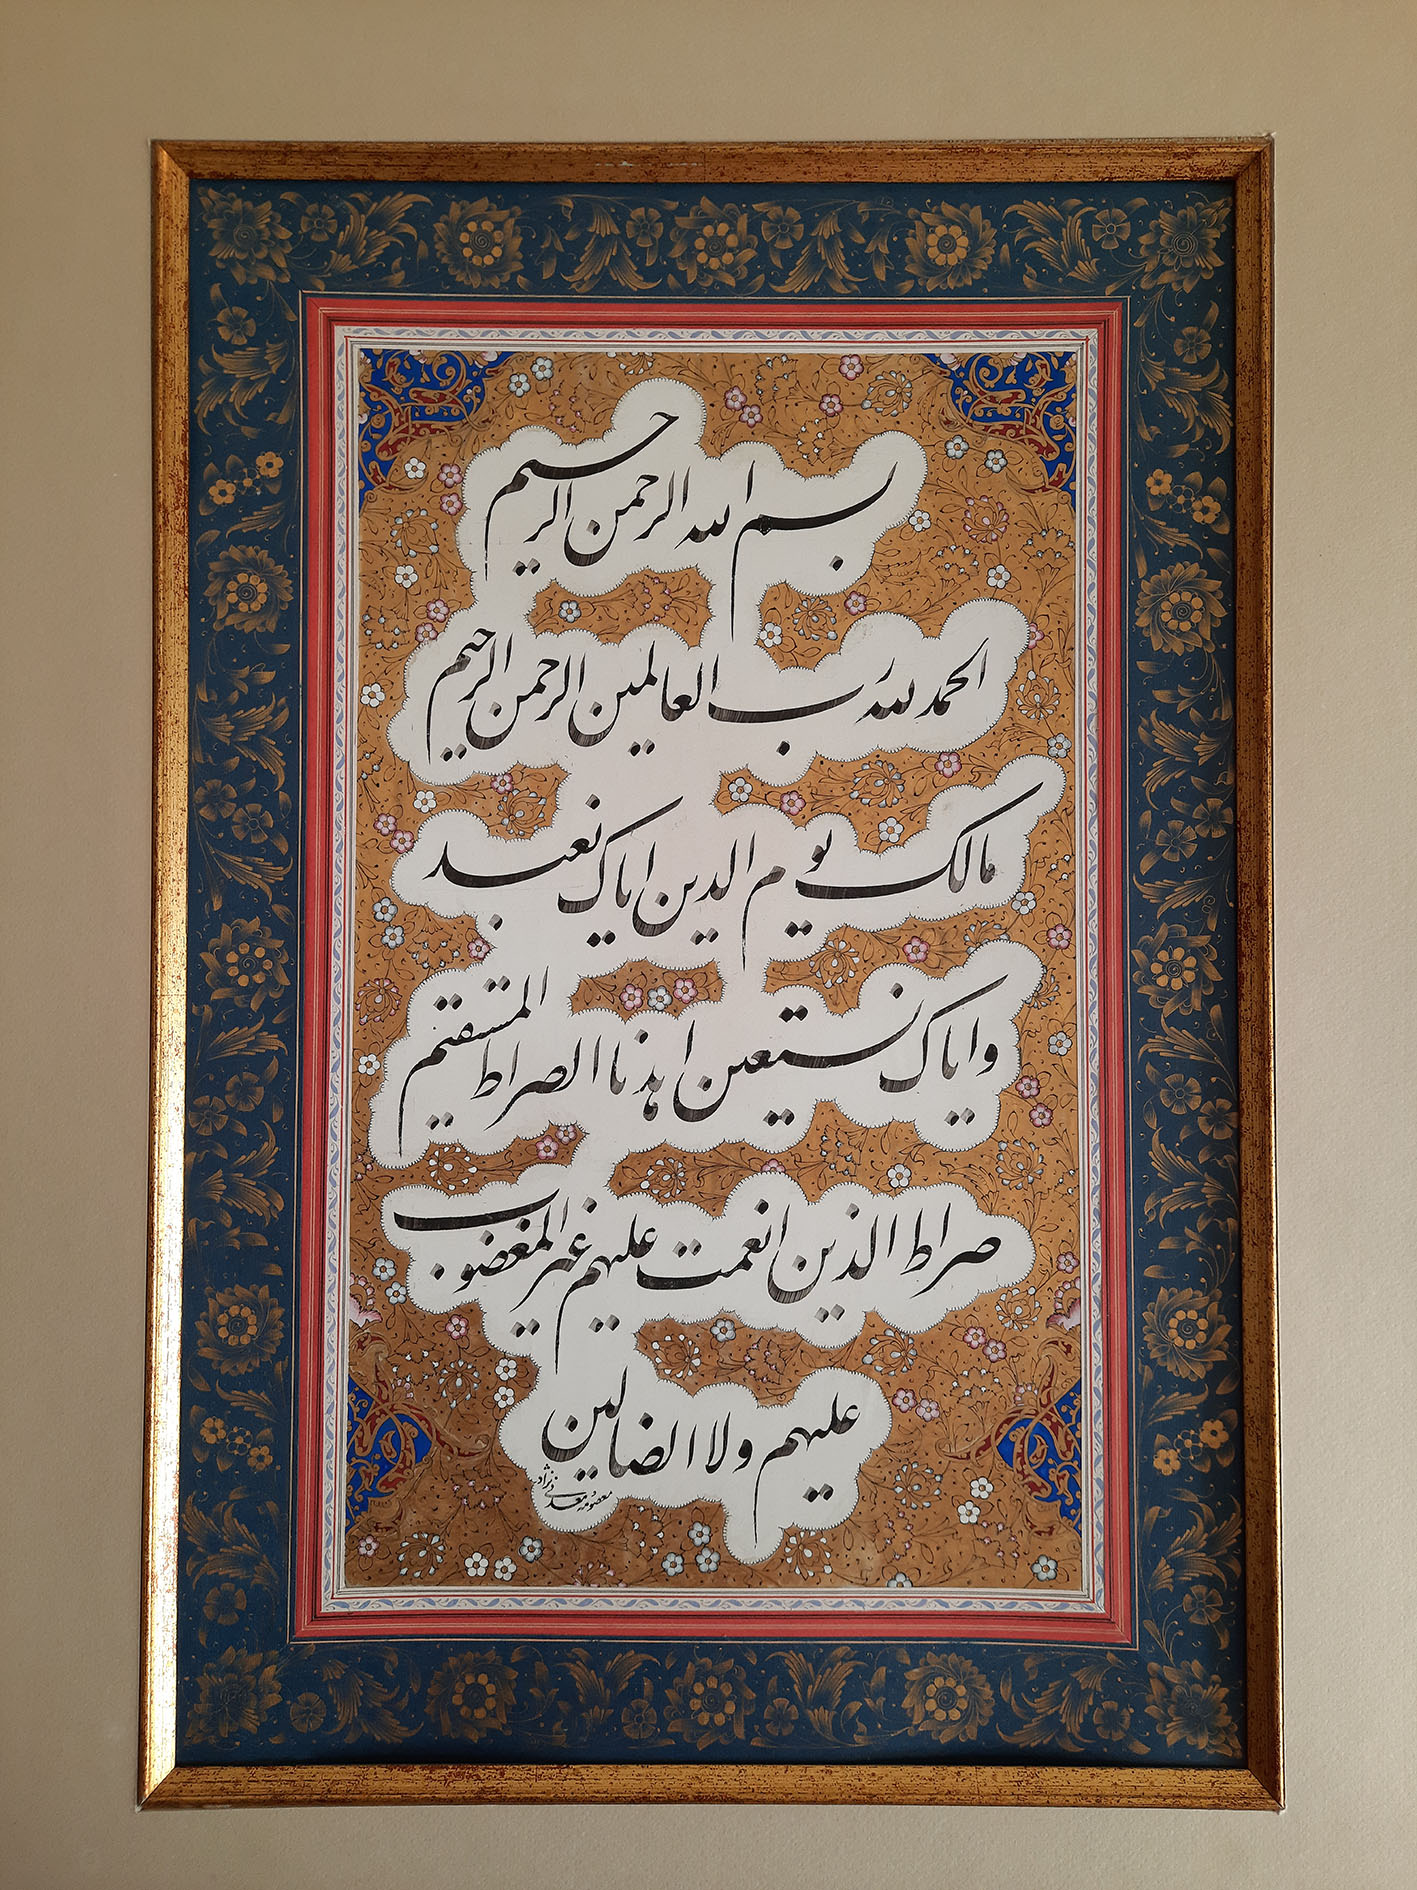 بسم الله الرحمن الرحیم
الحمد لله رب العالمین الرحمن الرحیم
مالک یوم الدین ایاک نعبد
وایاک نستعین اهدنا الصراط المستقیم
صراط الذین انعمت علیهم غیر المغضوب
علیهم ولا الضالین
معصومه معدنی نژاد